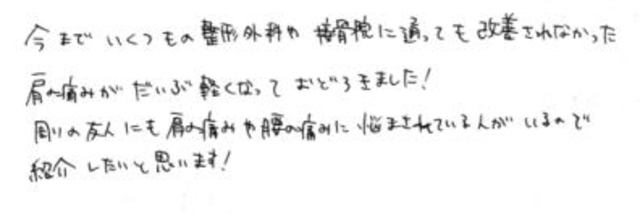 今まで いくつもの 整形外科や 接骨院に通っても 改善されなかった
肩の痛みが だいぶ 軽くなって おどろきました!
周りの友人にも 肩の痛みや腰の痛みに 悩まされている人が いるので
紹介 したいと 思います!